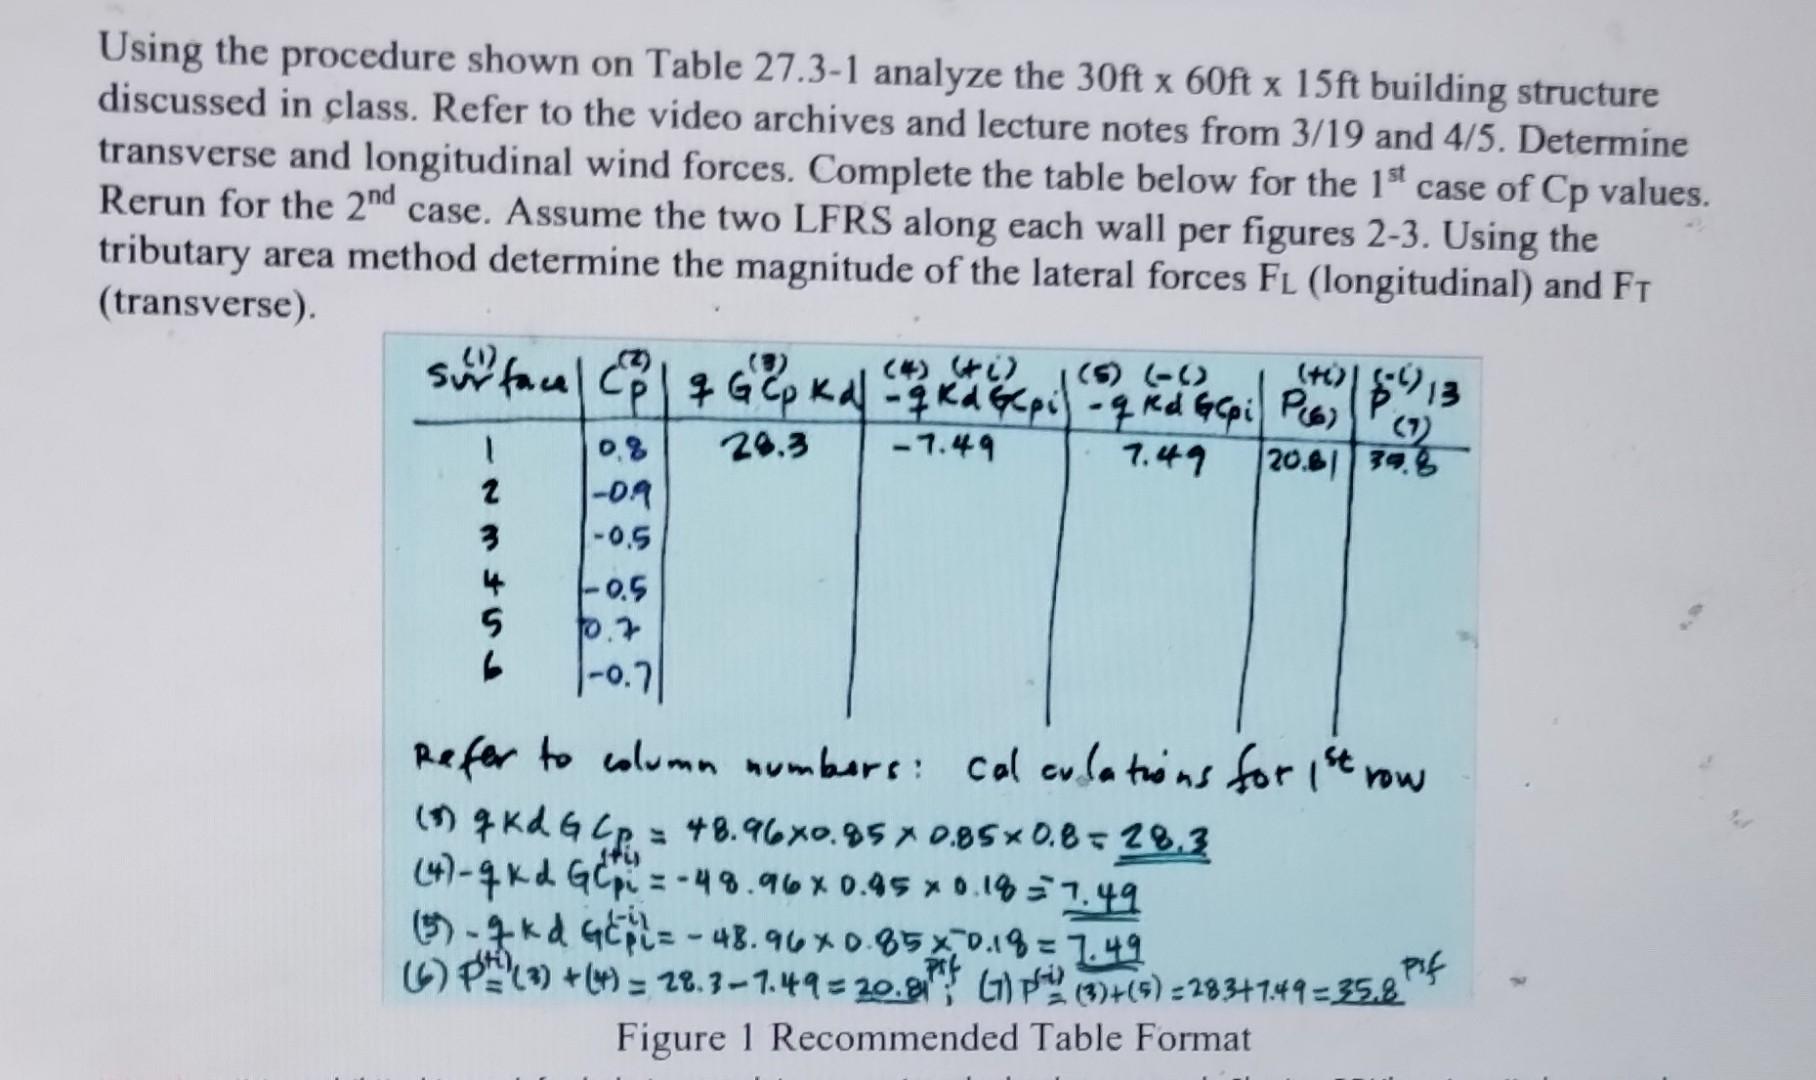 Using the procedure shown on Table 27.3-1 analyze the 30ft x 60ft x 15ft building structure
discussed in class. Refer to the video archives and lecture notes from 3/19 and 4/5. Determine
transverse and longitudinal wind forces. Complete the table below for the 1st case of Cp values.
Rerun for the 2nd case. Assume the two LFRS along each wall per figures 2-3. Using the
tributary area method determine the magnitude of the lateral forces FL (longitudinal) and FT
(transverse).
(1) (2) (3) (4) (+i) (5) (-i) (+i) (-i) 13
Surface Cp q G Cp Kd -q Kd GCpi -q Kd GCpi P(6) P (7)
1 0.8 28.3 -7.49 7.49 20.81 35.8
2 -0.9
3 -0.5
4 -0.5
5 0.7
6 -0.7
Refer to column numbers: Calculations for 1st row
(3) q Kd G Cp = 48.96x0.85 x 0.85x0.8 = 28.3
(4) -q Kd GCpi(+i) = -48.96 x 0.85 x 0.18 = -7.49
(5) -q Kd GCpi(-i) = -48.96 x 0.85 x -0.18 = 7.49
(6) P(+i) = (3) + (4) = 28.3-7.49 = 20.81 psf; (7) P(-i) = (3)+(5) = 28.3+7.49 = 35.8 psf
Figure 1 Recommended Table Format